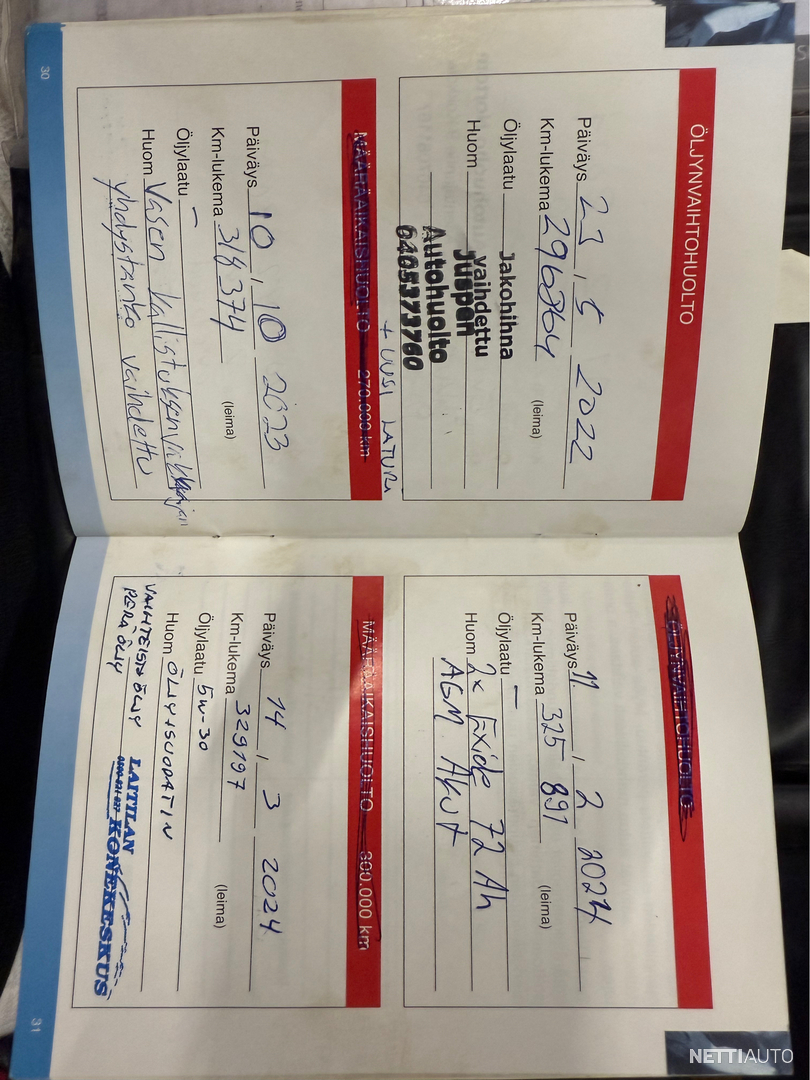 ÖLJYNVAIHTOHUOLTO
Päiväys 23 / 5 2022
Km-lukema 296864
(leima)
Öljylaatu Jakohihna
vaihdettu
Huom Juspen
Autohuolto
0405373760
+ UUSI LATURI
MÄÄRÄAIKAISHUOLTO 270.000 km
Päiväys 10 / 10 2023
Km-lukema 318374
(leima)
Öljylaatu –
Huom Vasen kallistuksenvakaajan
yhdystanko vaihdettu
30
ÖLJYNVAIHTOHUOLTO
Päiväys 11. / 2 2024
Km-lukema 325 891
(leima)
Öljylaatu –
Huom 2x Exide 72 Ah
AGM Akut
MÄÄRÄAIKAISHUOLTO 300.000 km
Päiväys 14 / 3 2024
Km-lukema 329197
(leima)
Öljylaatu 5W-30
Huom ÖLJY+SUODATIN
VAIHTEISTO ÖLJY
PERÄ ÖLJY
LAITILAN
KONEKESKUS
31
NETTIAUTO